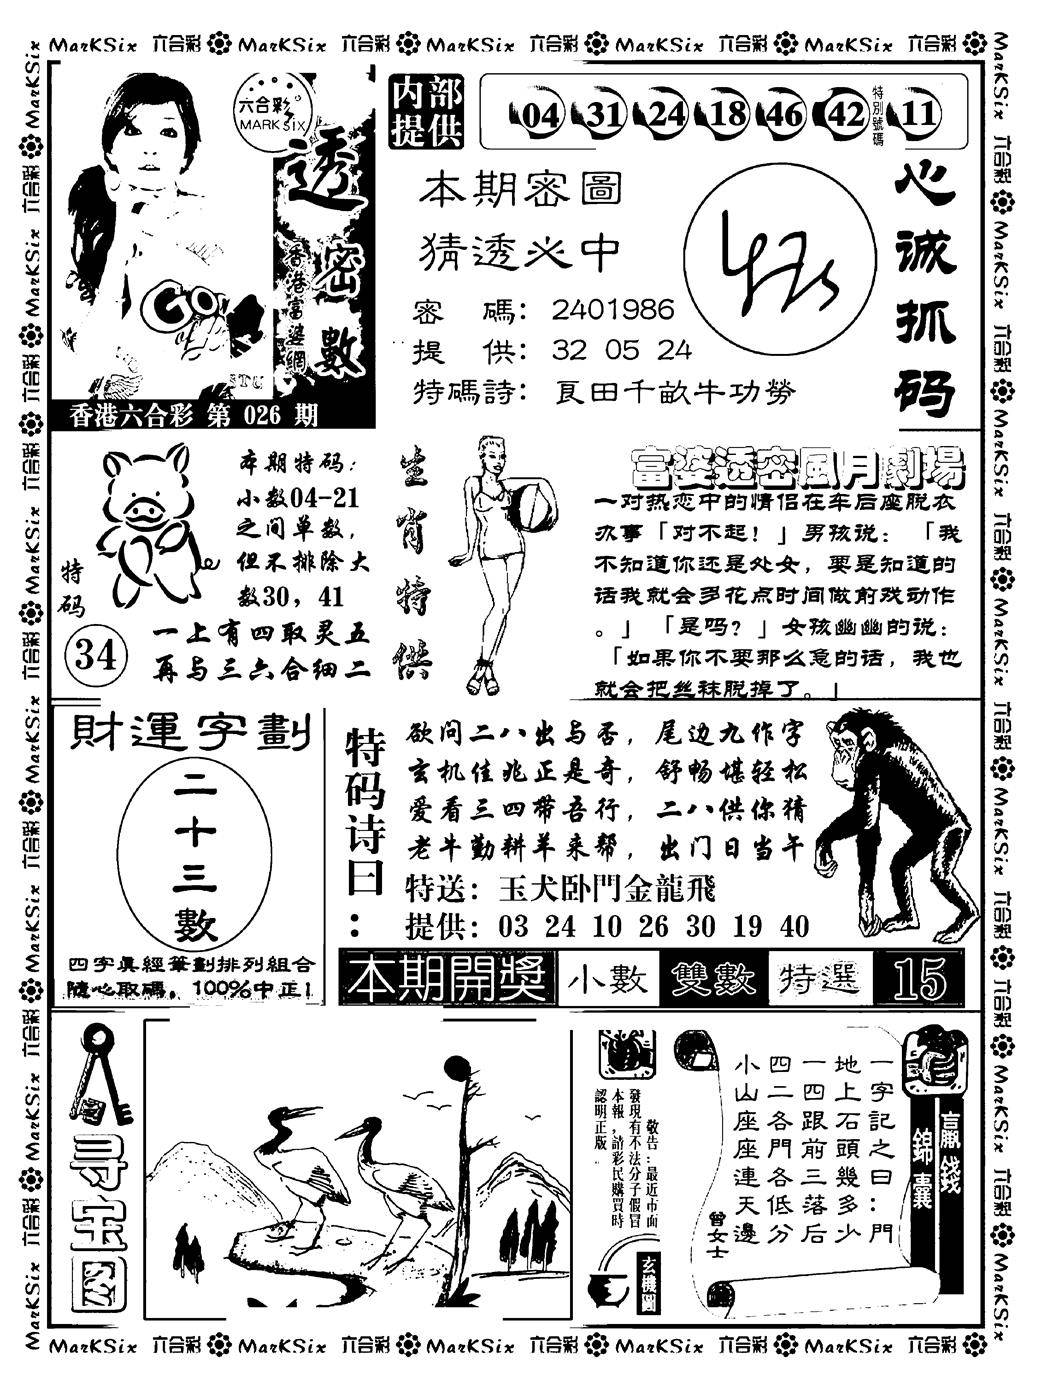 MarKSix 六合彩 MarKSix 六合彩 MarKSix 六合彩 MarKSix 六合彩 MarKSix 六合彩
六合彩
MARK SIX
透密數
香港富婆網
Go
香港六合彩 第 026 期
内部提供
04 31 24 18 46 42 特別號碼 11
本期密圖
猜透必中
密 碼：2401986
提 供：32 05 24
特碼詩：良田千畝牛功勞
心诚抓码
本期特码：
小数04-21
之间单数，
但不排除大
数30，41
特码
34
一上有四取灵五
再与三六合细二
生肖特供
富婆透密風月劇場
一对热恋中的情侣在车后座脱衣
办事「对不起！」男孩说：「我
不知道你还是处女，要是知道的
话我就会多花点时间做前戏动作
。」「是吗？」女孩幽幽的说：
「如果你不要那么急的话，我也
就会把丝袜脱掉了。」
財運字劃
二十三數
四字真經筆劃排列組合
隨心取碼，100%中正！
特码诗曰：
欲问二八出与否，尾边九作字
玄机佳兆正是奇，舒畅堪轻松
爱看三四带吾行，二八供你猜
老牛勤耕羊来帮，出门日当午
特送：玉犬卧門金龍飛
提供：03 24 10 26 30 19 40
本期開獎 小數 雙數 特選 15
寻宝图
敬告：最近市面
發現有不法分子假冒
本報，請彩民購買時
認明正版
玄機圖
贏錢
錦囊
一字記之曰：門
地上石頭幾多少
一四跟前三落后
四二各門各低分
小山座座連天邊
曾女士
MarKSix 六合彩 MarKSix 六合彩 MarKSix 六合彩 MarKSix 六合彩 MarKSix 六合彩